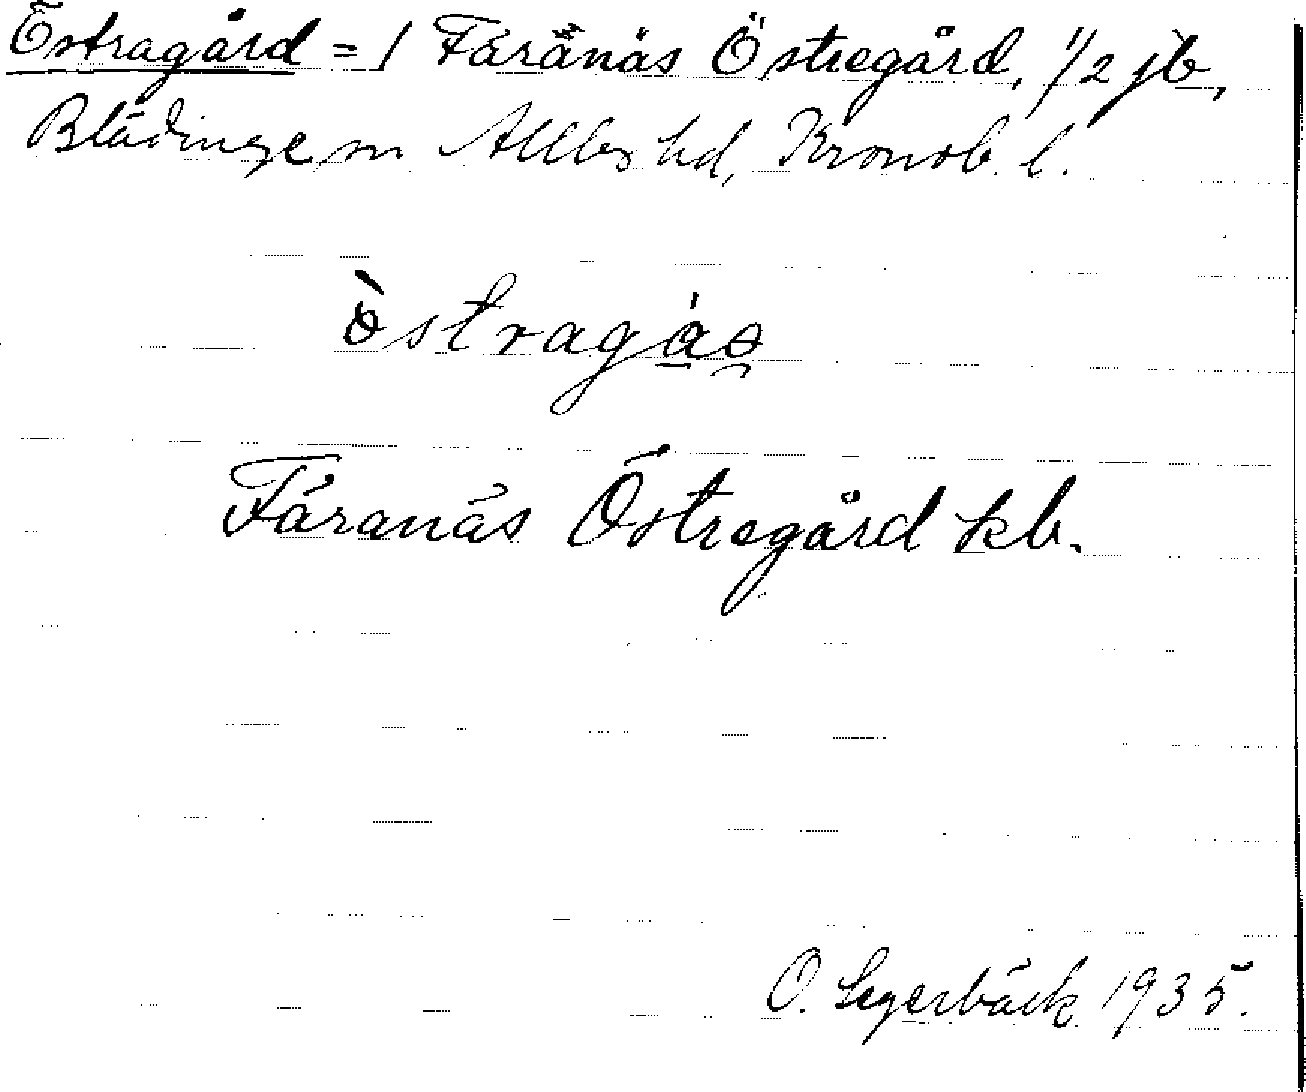 Östragård = 1 Fåranäs Östregård, 1/2 jb,
Blädinge sn Allbo hd, Kronob. l.
östragas
Fåranäs Östregård kb.
O. Segerbäck 1935.